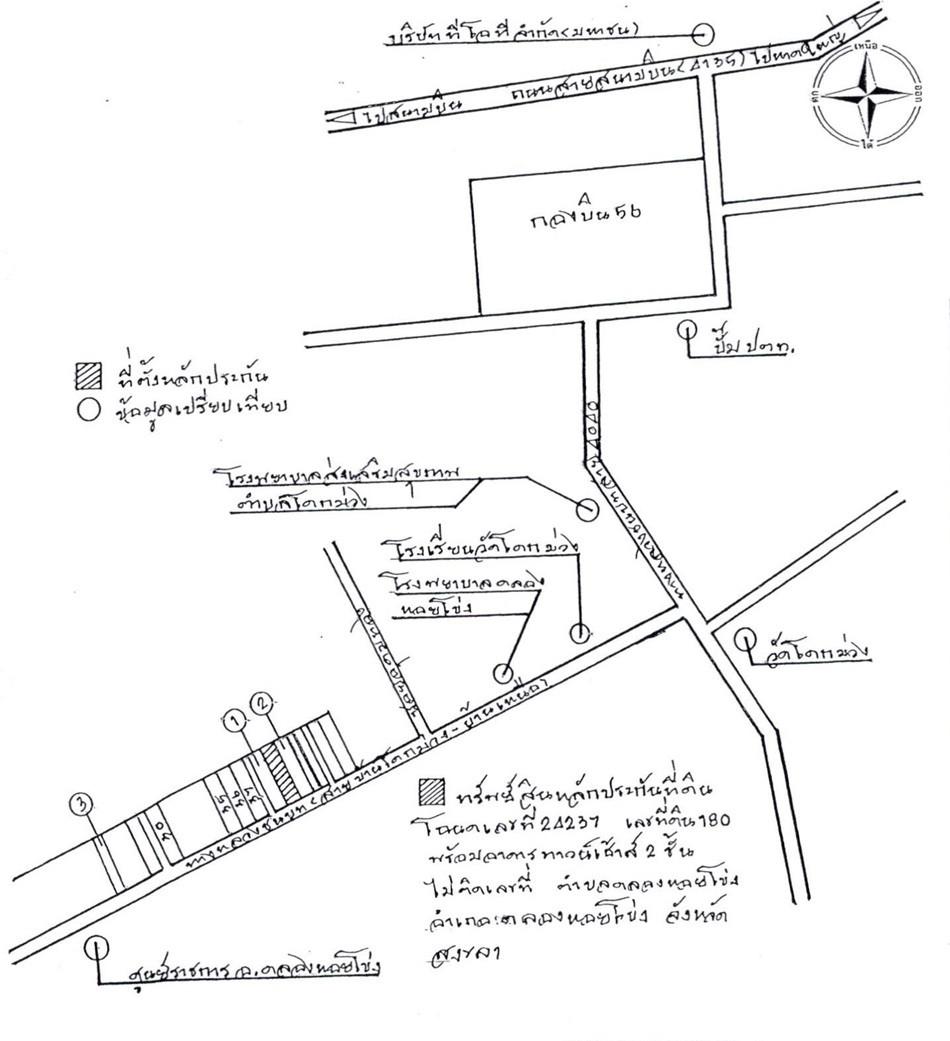 บริษัท ทีโอที จำกัด (มหาชน)
ไปสนามบิน
ถนนสายสนามบิน (4135)
ไปหาดใหญ่
เหนือ
ตก
ออก
ใต้
กองบิน 56
ปั๊ม ปตท.
ที่ตั้งหลักประกัน
ข้อมูลเปรียบเทียบ
โรงพยาบาลส่งเสริมสุขภาพ
ตำบลโคกม่วง
โรงเรียนวัดโคกม่วง
โรงพยาบาลคลอง
หอยโข่ง
วัดโคกม่วง
1
2
3
ทางหลวงชนบท (สายบ้านโคกม่วง-บ้านเหนือ)
ทรัพย์สินหลักประกันที่ดิน
โฉนดเลขที่ 24237 เลขที่ดิน 180
พร้อมอาคารทาวน์เฮ้าส์ 2 ชั้น
ไม่ติดเลขที่ ตำบลคลองหอยโข่ง
อำเภอคลองหอยโข่ง จังหวัด
สงขลา
ศูนย์ราชการ อ.คลองหอยโข่ง